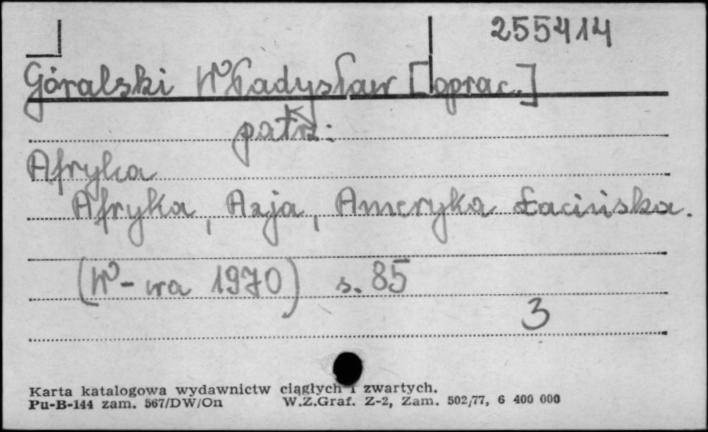 255414
Góralski Władysław [oprac.]
patrz:
Afryka
Afryka, Azja, Ameryka Łacińska.
(W-wa 1970) s. 85
3
Karta katalogowa wydawnictw ciągłych i zwartych.
Pu-B-144 zam. 567/DW/On W.Z.Graf. Z-2, Zam. 502/77, 6 400 000